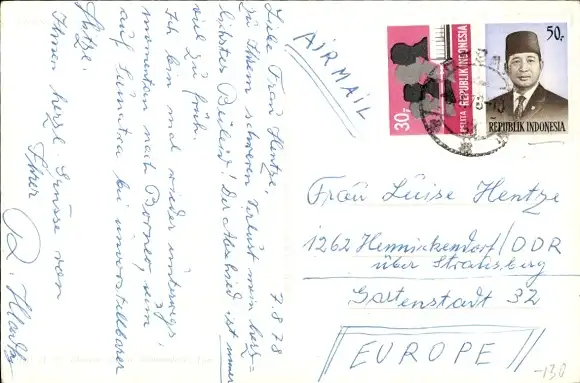 7.8.78
Liebe Frau Hentze,
zu Ihrem schweren Verlust mein herz=
lichstes Beileid! Der Abschied ist immer
viel zu früh.
Ich bin mal wieder unterwegs,
momentan nach Borneo, um
auf Sumatra bei unvorstellbarer
Hitze.
Ihnen herzl. Grüsse von
Ihrer
AIRMAIL
30.-
PELITA
REPUBLIK INDONESIA
50.-
REPUBLIK INDONESIA
Frau Luise Hentze
1262 Hennickendorf/DDR
über Strausberg
Gartenstadt 32
EUROPE
-130